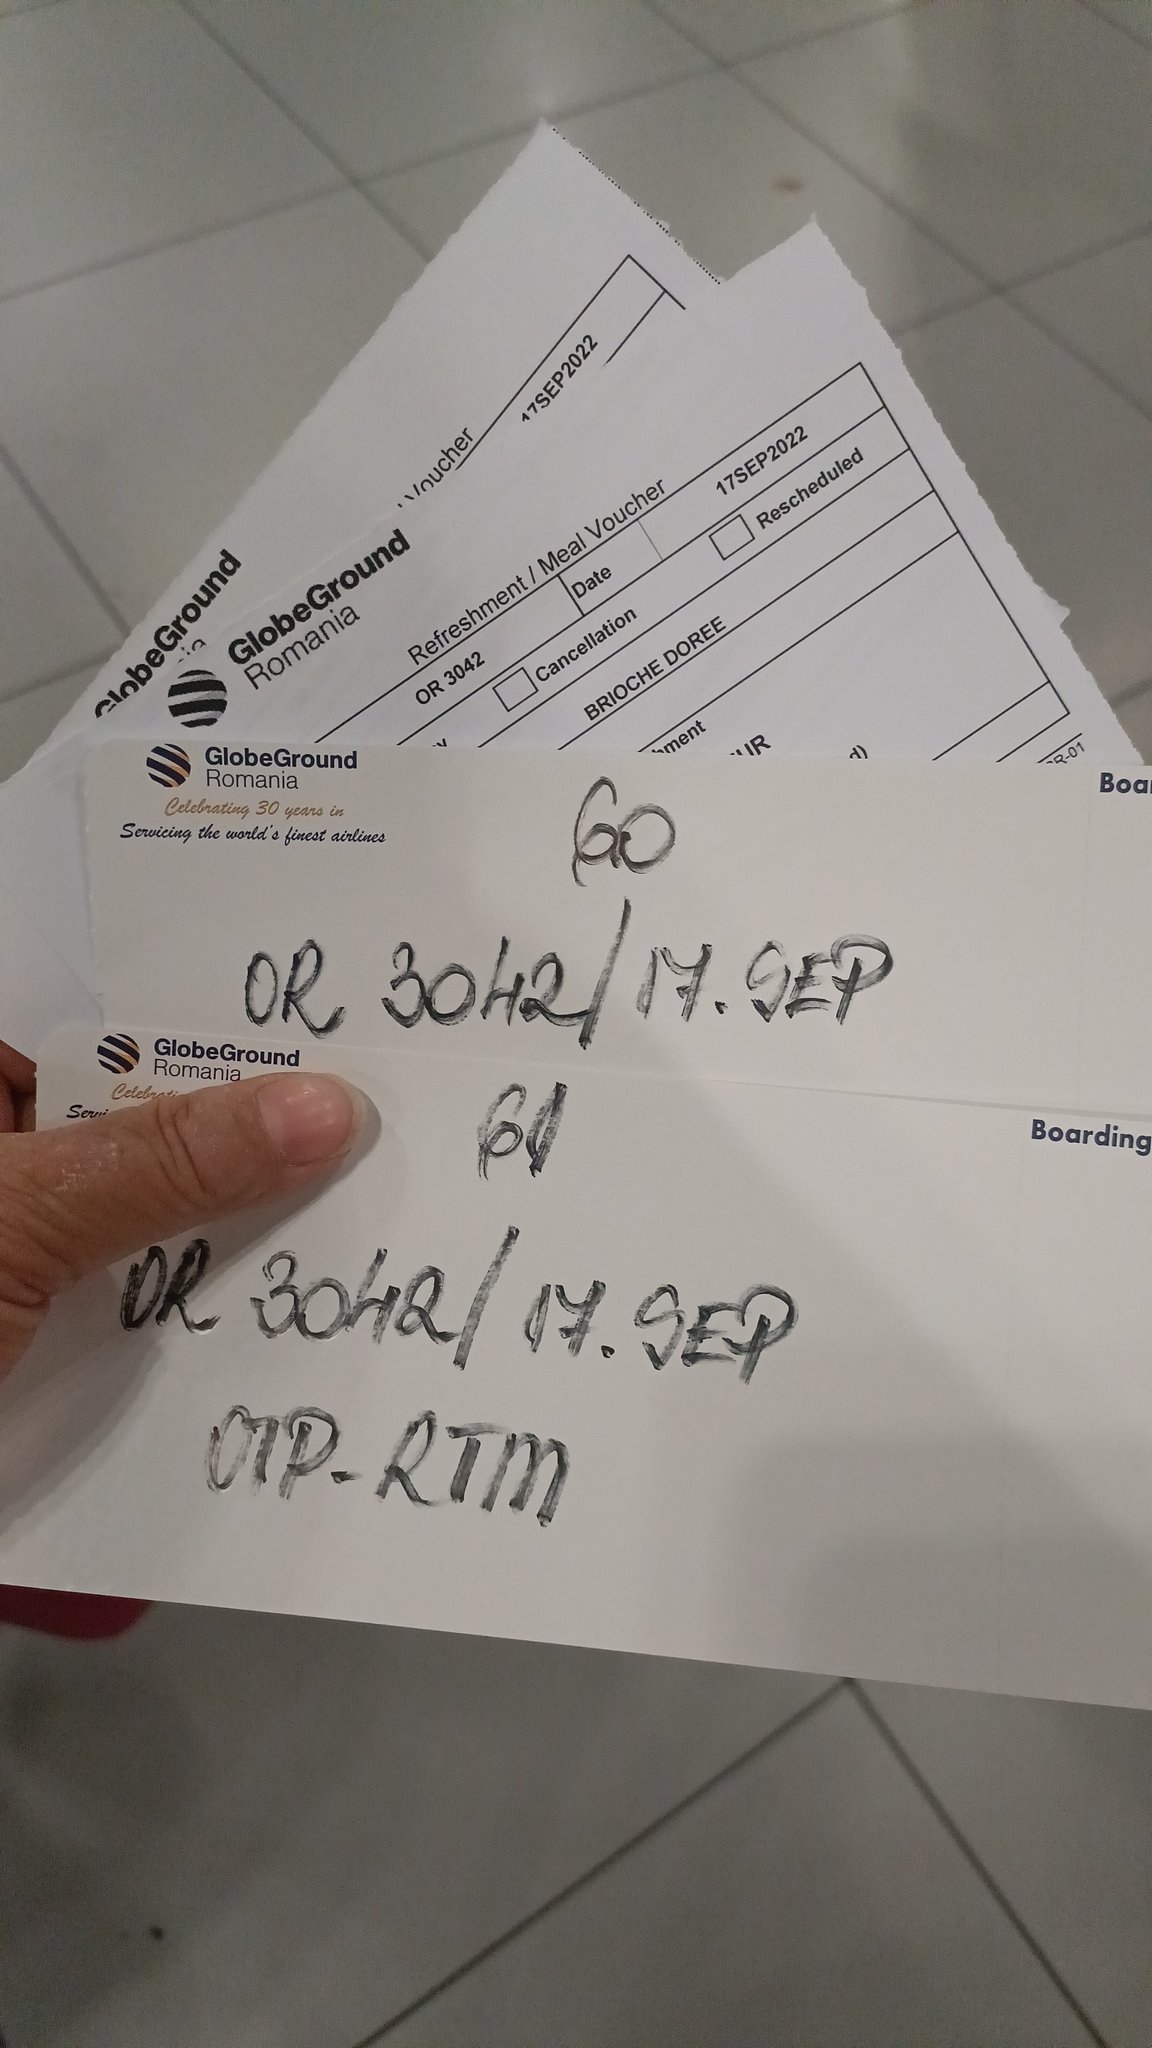 Voucher
17SEP2022
GlobeGround
GlobeGround
Romania
Refreshment / Meal Voucher
OR 3042
Date
17SEP2022
Cancellation
Rescheduled
BRIOCHE DOREE
GlobeGround
Romania
Celebrating 30 years in
Servicing the world's finest airlines
60
OR 3042/17.SEP
GlobeGround
Romania
61
Boarding
OR 3042/17.SEP
OTP-RTM